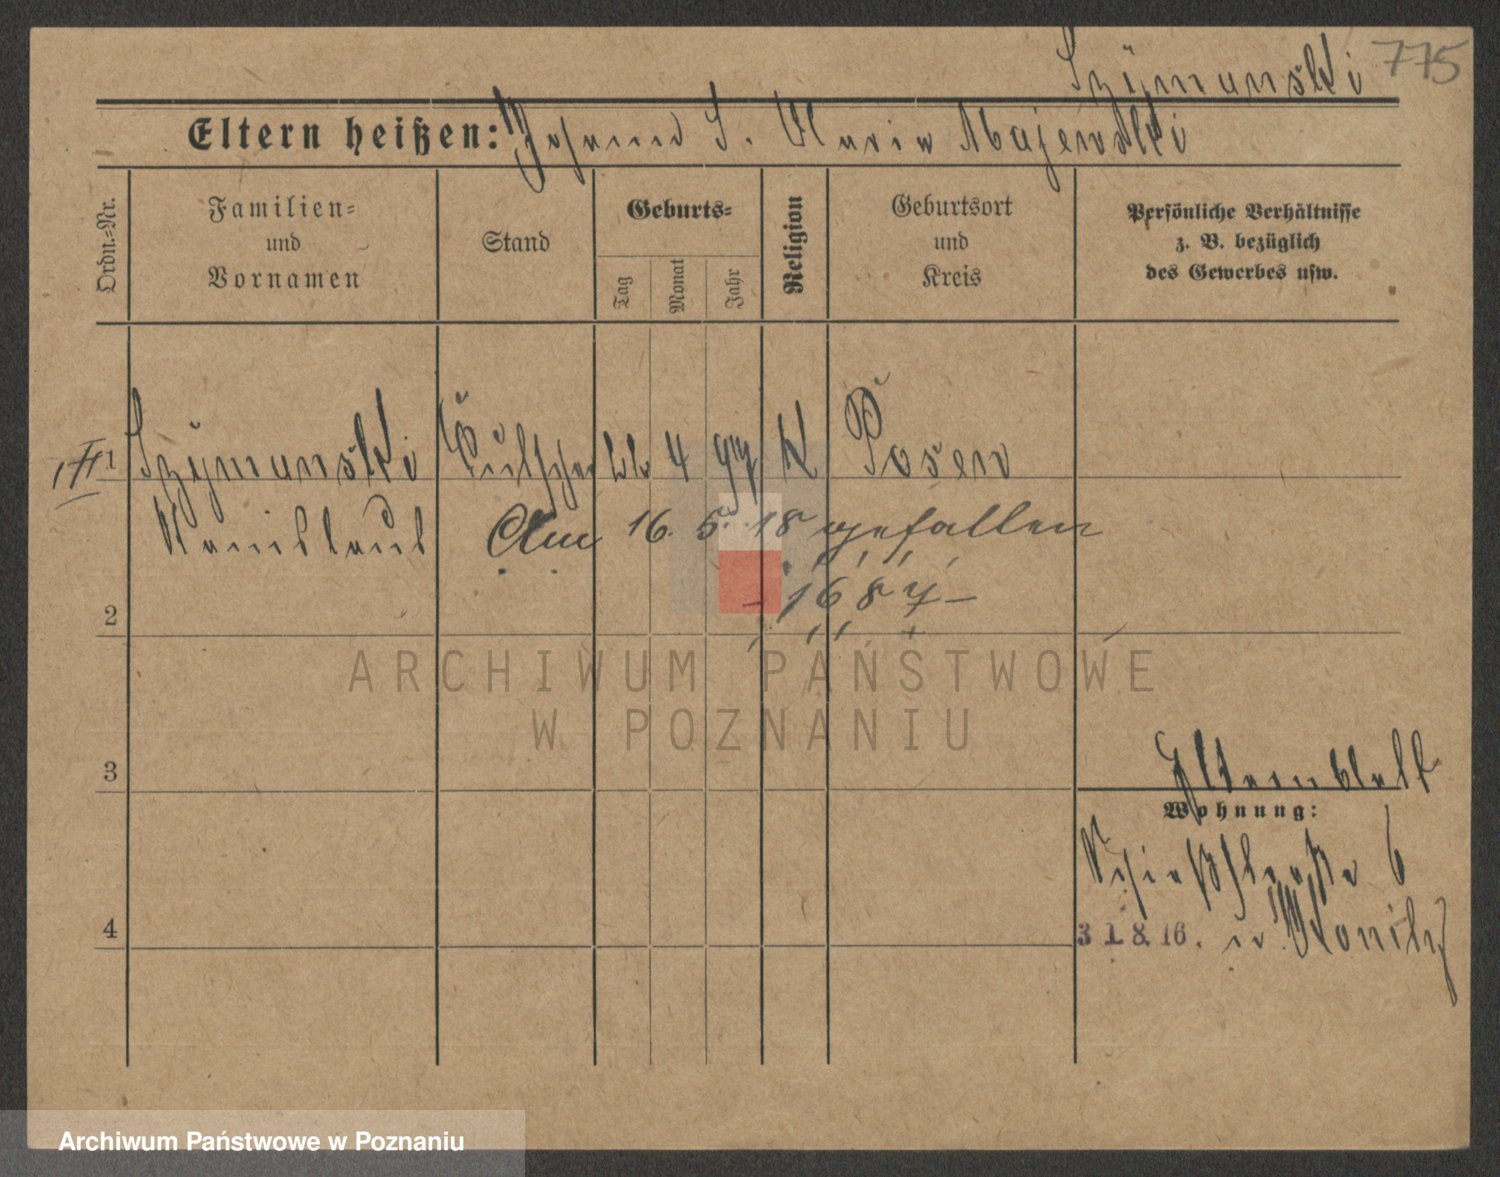 775
Szÿmanski
Eltern heißen: Johann S. Maria Majewski
Ordn.=Nr.
Familien=
und
Vornamen
Stand
Geburts=
Tag
Monat
Jahr
Religion
Geburtsort
und
Kreis
Persönliche Verhältnisse
z. B. bezüglich
des Gewerbes usw.
1 Szÿmanski 4 K Posen
Am 16. 5. 18 gefallen
2
- 1687 -
ARCHIWUM PAŃSTWOWE
W POZNANIU
3
Elternblatt
Wohnung:
Schießstraße 6
4
31.8.16.
Archiwum Państwowe w Poznaniu